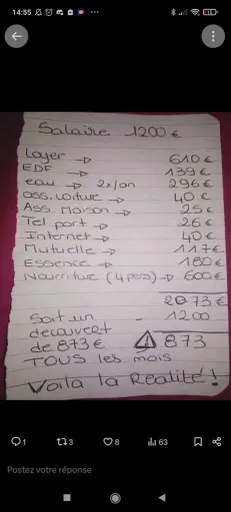 14:55
Salaire 1200 €
Loyer → 610 €
EDF → 139 €
eau → 2x/an 296 €
ass. voiture → 40 €
Ass Maison → 25 €
Tel port → 26 €
Internet → 40 €
Mutuelle → 117 €
Essence → 180 €
Nourriture (4 pers) → 600 €
2073 €
Soit un - 1200
decouvert
de 873 € ⚠ 873
TOUS les mois
Voilà la Réalité !
1 3 8 63
Postez votre réponse